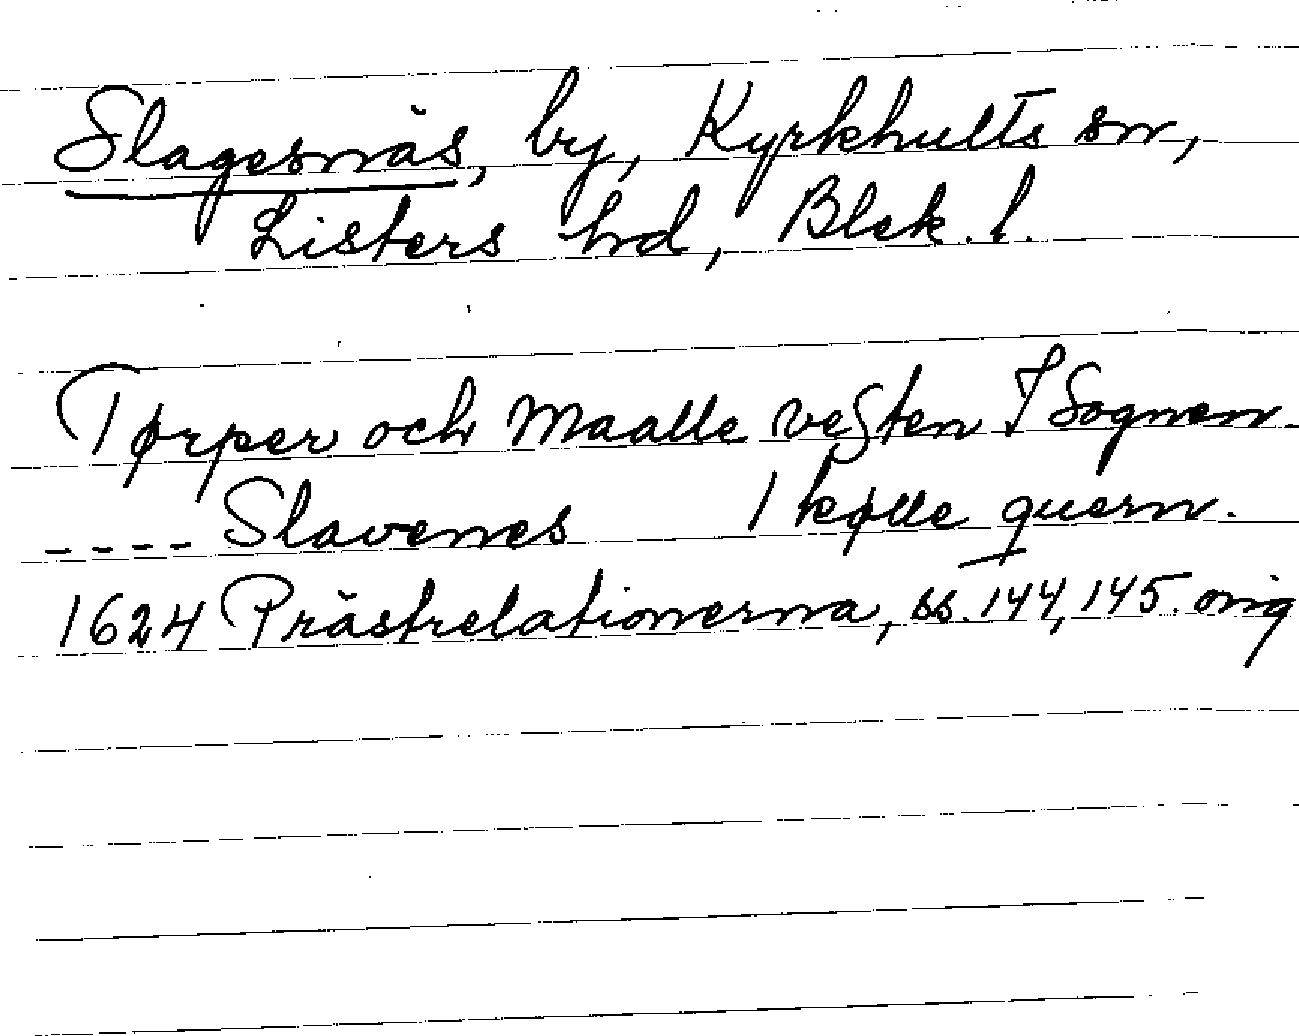 Slagesnäs, by, Kyrkhults sn,
Listers hd, Blek. l.
Tørper och Maalle vesten I Sognen.
---- Slavenes 1 kølle quern.
1624 Prästrelationerna, ss. 144, 145. orig